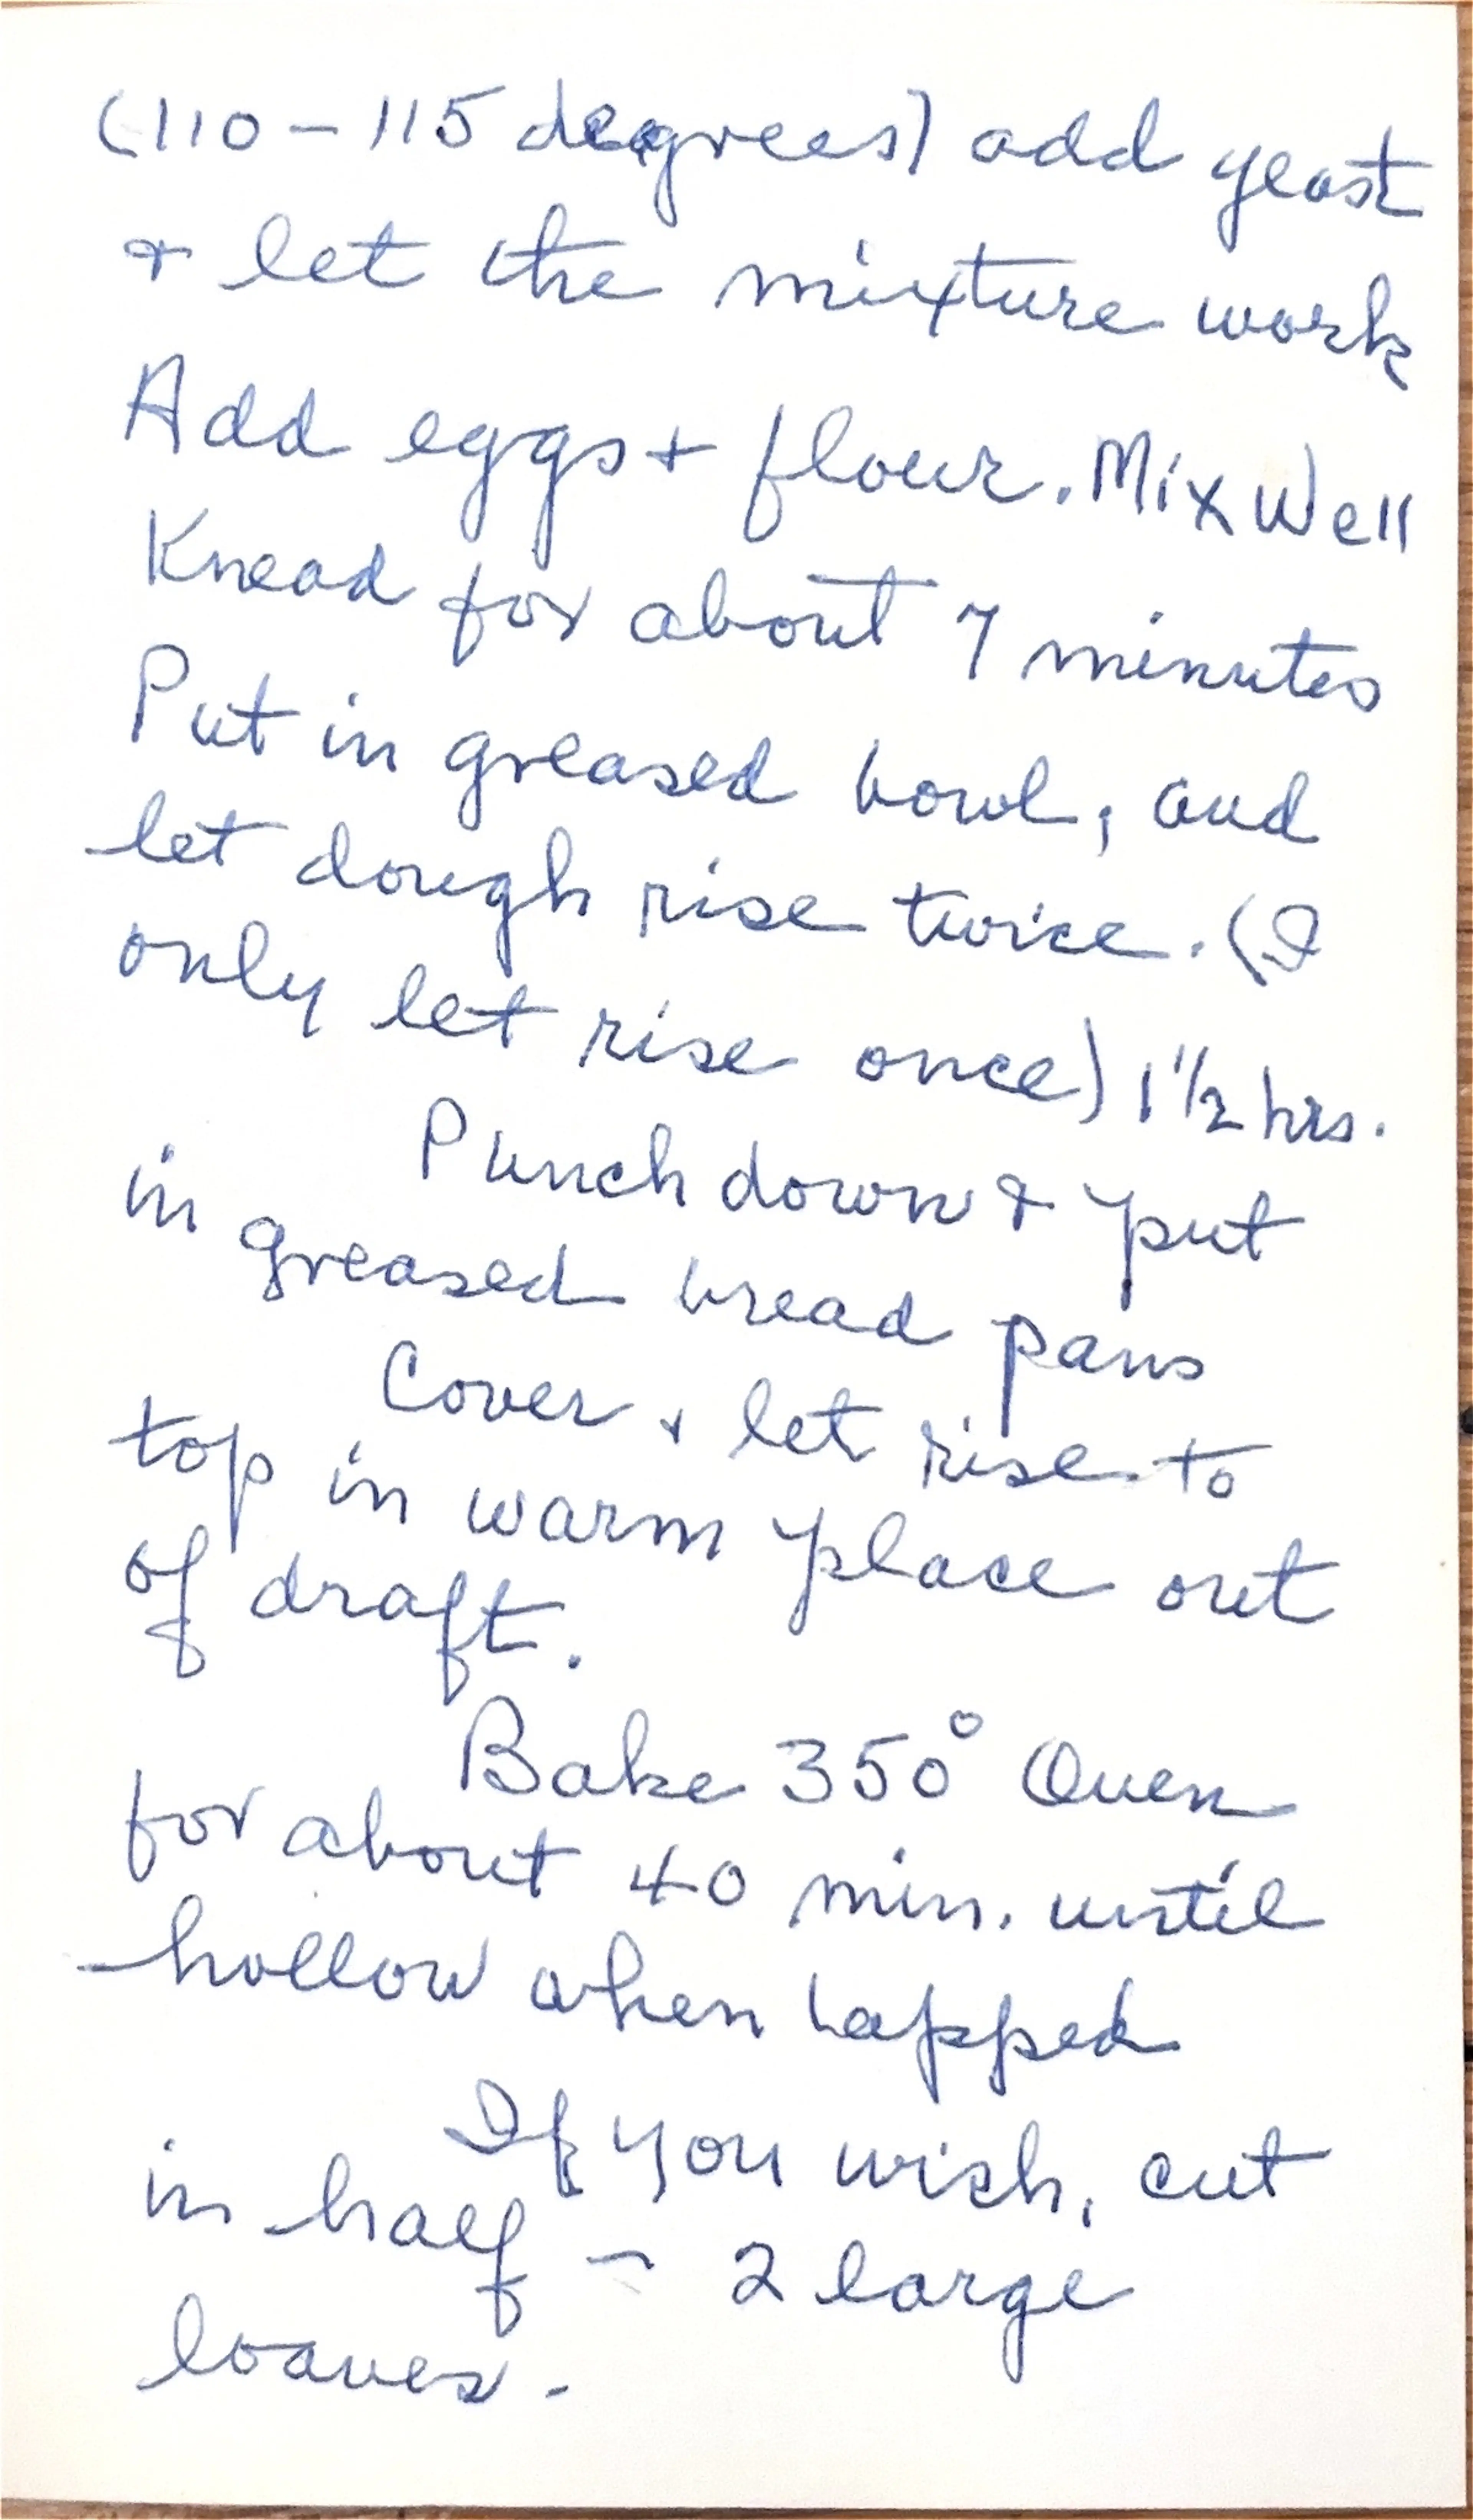 (110 - 115 degrees) add yeast
& let the mixture work
Add eggs + flour. Mix Well
Knead for about 7 minutes
Put in greased bowl, and
let dough rise twice. (I
only let rise once) 1 1/2 hrs.
Punch down & put
in greased bread pans
Cover & let rise to
top in warm place out
of draft.
Bake 350° Oven
for about 40 min. until
hollow when tapped
If you wish, cut
in half - 2 large
loaves.